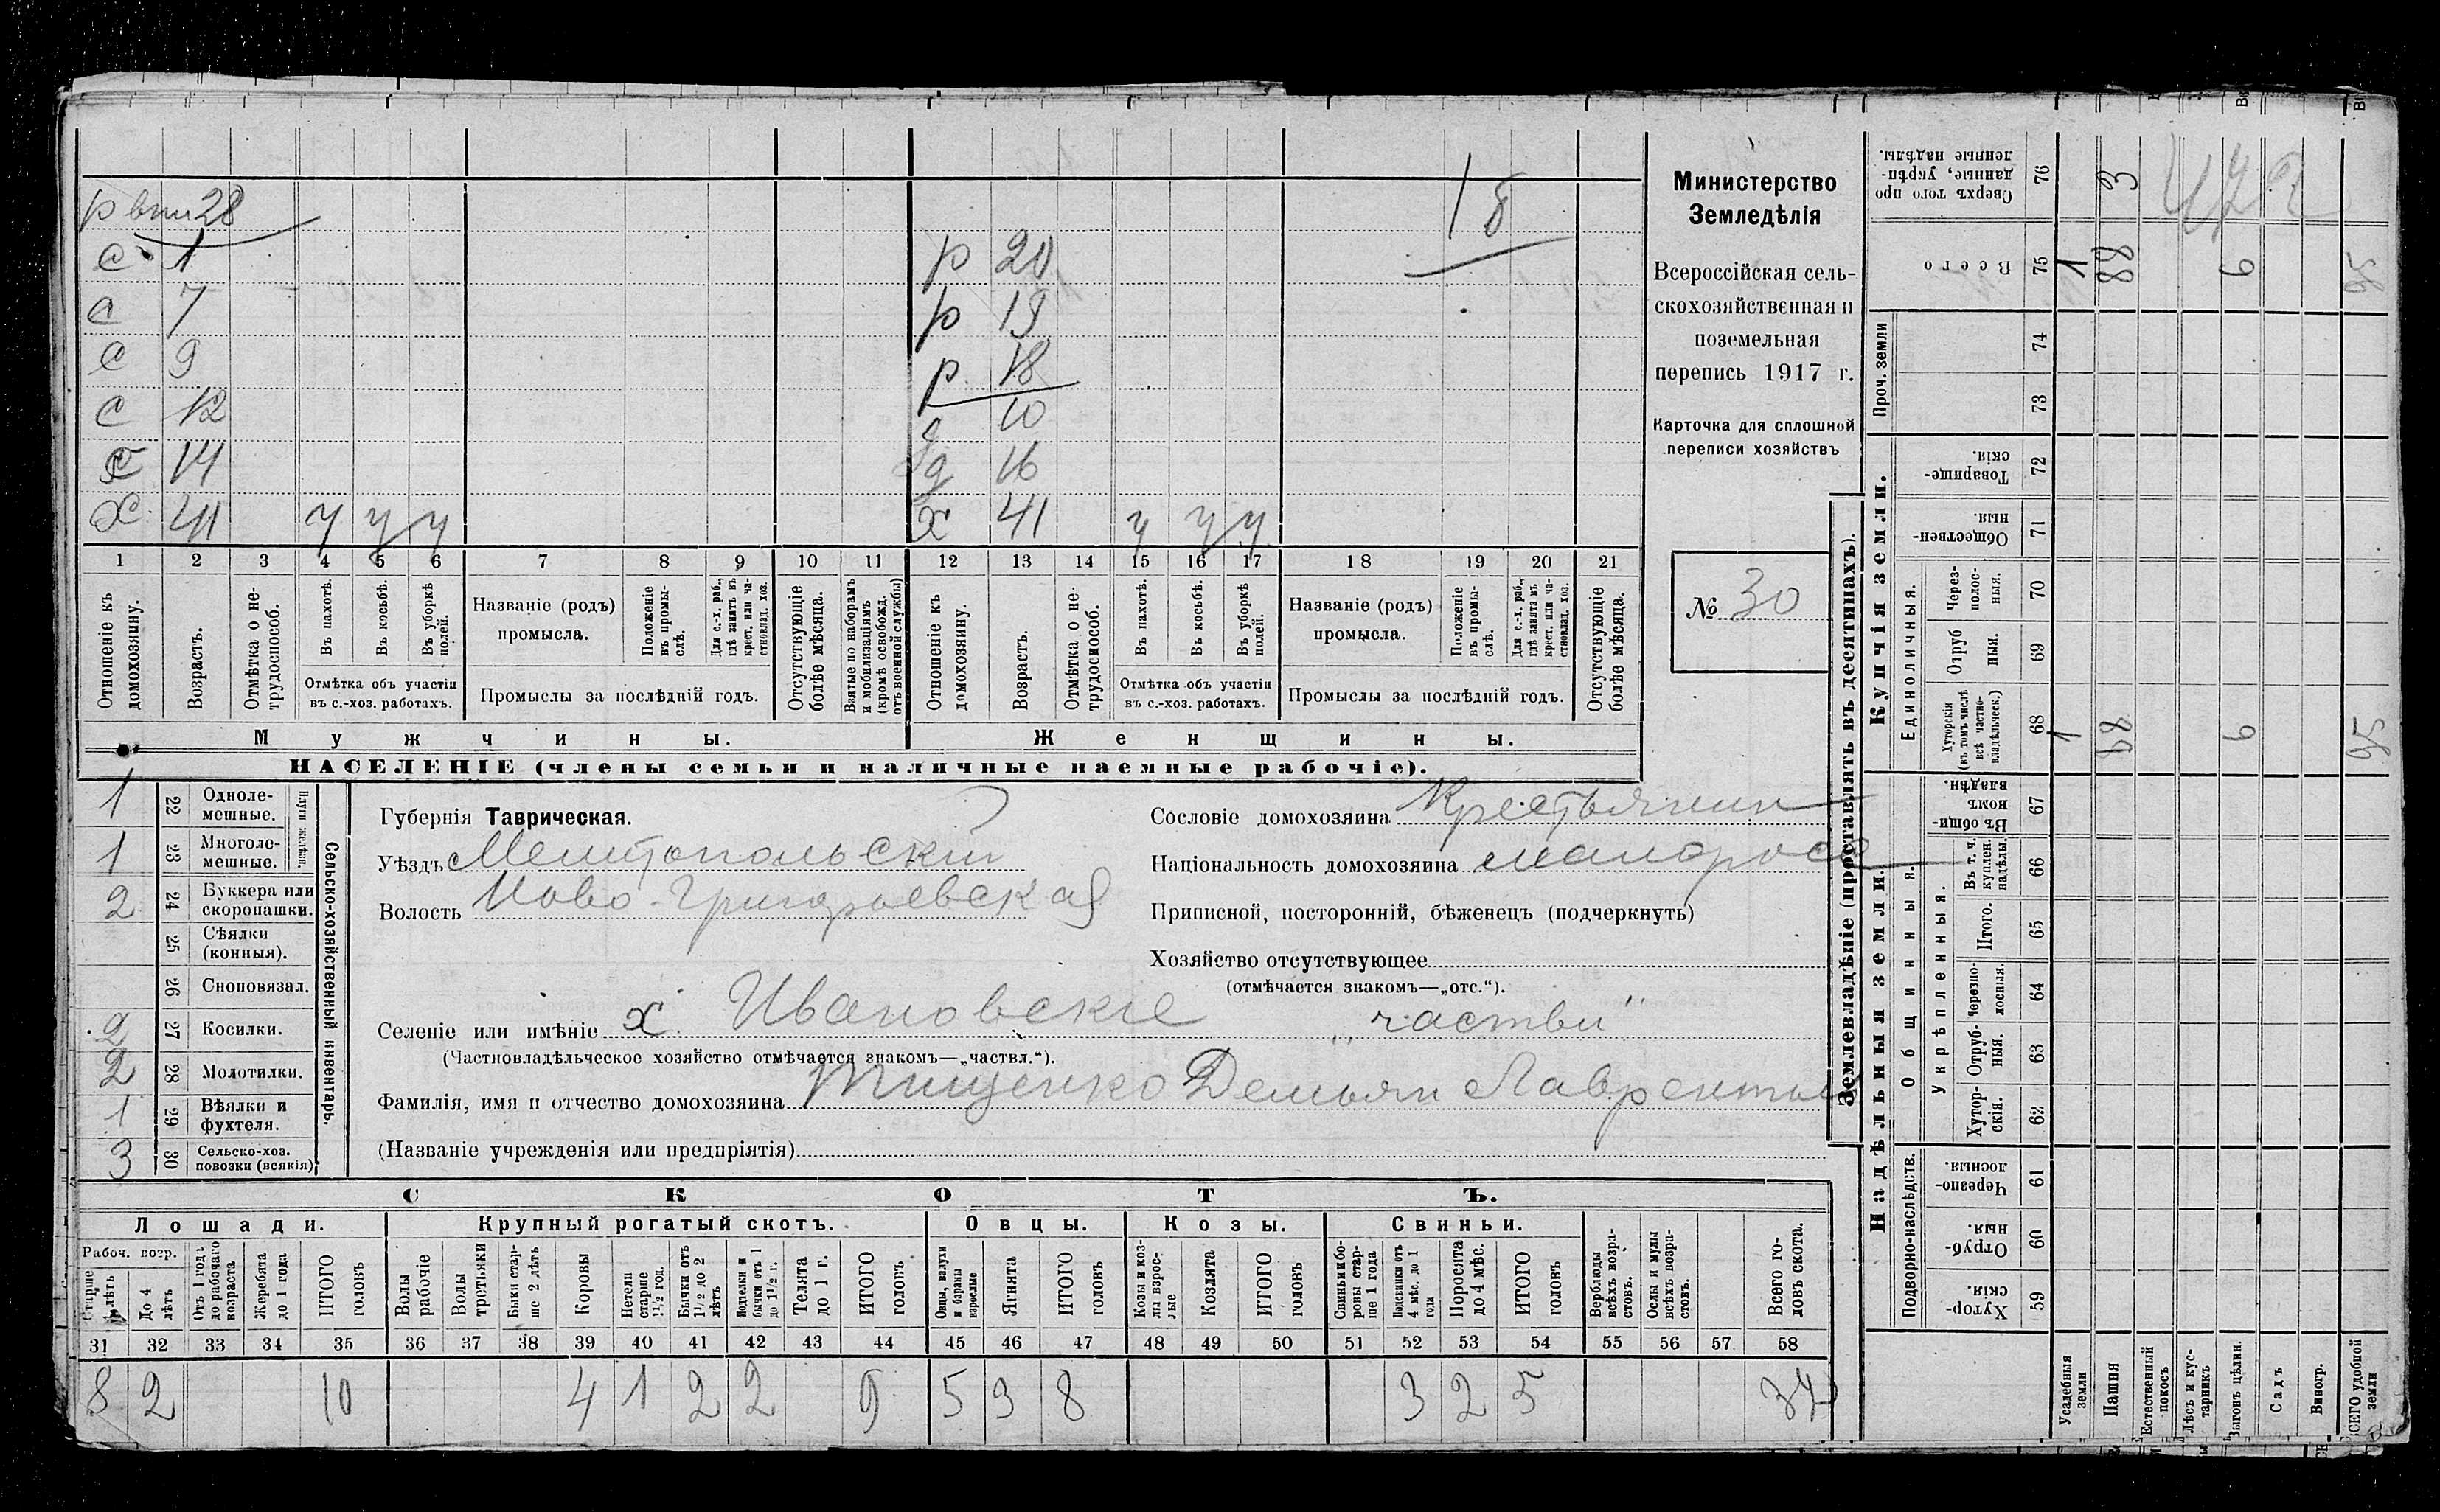 р впл 28
с 1
с 7
с 9
с 12
с 14
х 41 у у у
р 20
р 19
р 18
10
д 16
х 41 у у у
1 2 3 4 5 6 7 8 9 10 11 12 13 14 15 16 17 18 19 20 21
Отношеніе къ домохозяину.
Возрастъ.
Отмѣтка о нетрудоспособ.
Въ пахотѣ.
Въ косьбѣ.
Въ уборкѣ полей.
Отмѣтка объ участіи въ с.-хоз. работахъ.
Названіе (родъ) промысла.
Положеніе въ промыслѣ.
Для с.-х. раб., гдѣ занятъ въ крест. или частновлад. хоз.
Промыслы за послѣдній годъ.
Отсутствующіе болѣе мѣсяца.
Взятые по наборамъ и мобилизаціямъ (кромѣ освобожд. отъ военной службы)
Отношеніе къ домохозяину.
Возрастъ.
Отмѣтка о нетрудоспособ.
Въ пахотѣ.
Въ косьбѣ.
Въ уборкѣ полей.
Отмѣтка объ участіи въ с.-хоз. работахъ.
Названіе (родъ) промысла.
Положеніе въ промыслѣ.
Для с.-х. раб., гдѣ занята въ крест. или частновлад. хоз.
Промыслы за послѣдній годъ.
Отсутствующіе болѣе мѣсяца.
Мужчины. Женщины.
НАСЕЛЕНІЕ (члены семьи и наличные наемные рабочіе).
Министерство
Земледѣлія
Всероссійская сель-
скохозяйственная и
поземельная
перепись 1917 г.
Карточка для сплошной
переписи хозяйствъ
№ 30
Сельско-хозяйственный инвентарь.
Плуги желѣзн.
1 22 Одноле-мешные.
1 23 Многоле-мешные.
2 24 Буккера или скоропашки.
25 Сѣялки (конныя).
26 Сноповязал.
2 27 Косилки.
2 28 Молотилки.
1 29 Вѣялки и фухтеля.
3 30 Сельско-хоз. повозки (всякія).
Губернія Таврическая.
Уѣздъ Мелитопольскій
Волость Ново-Григорьевская
Селеніе или имѣніе х. Ивановскіе "частвл"
(Частновладѣльческое хозяйство отмѣчается знакомъ—„частвл.“).
Фамилія, имя и отчество домохозяина Тищенко Демьян Лаврентьев
(Названіе учрежденія или предпріятія)
Сословіе домохозяина Крестьянин
Національность домохозяина малоросс
Приписной, посторонній, бѣженецъ (подчеркнуть)
Хозяйство отсутствующее
(отмѣчается знакомъ—„отс.“).
СКОТЪ.
Лошади. Крупный рогатый скотъ. Овцы. Козы. Свиньи.
Рабоч. возр.
Старше 4 лѣтъ
До 4 лѣтъ
Отъ 1 года до рабочаго возраста
Жеребята до 1 года
ИТОГО головъ
Волы рабочіе
Волы третьяки
Быки старше 2 лѣтъ
Коровы
Нетели старше 1½ год.
Бычки отъ 1½ до 2 лѣтъ
Подтелки и бычки отъ 1 до 1½ г.
Телята до 1 г.
ИТОГО головъ
Овцы, валухи и бараны взрослые
Ягнята
ИТОГО головъ
Козы и козлы взрослые
Козлята
ИТОГО головъ
Свиньи и боровы старше 1 года
Подсвинки отъ 4 мѣс. до 1 года
Поросята до 4 мѣс.
ИТОГО головъ
Верблюды всѣхъ возрастовъ.
Ослы и мулы всѣхъ возрастовъ.
Всего головъ скота.
31 32 33 34 35 36 37 38 39 40 41 42 43 44 45 46 47 48 49 50 51 52 53 54 55 56 57 58
8 2 10 4 1 2 2 9 5 3 8 3 2 5
Землевладѣніе (проставлять въ десятинахъ).
Купчія земли.
Надѣльныя земли.
Сверхъ того проданные, укрѣпленные надѣлы. 76 3
Всего 75 1 88 6 95
Проч. земли 74 73
Товарищескія. 72
Общественныя. 71
Единоличныя.
Черезполосныя. 70
Отрубныя. 69
Хуторскія (въ томъ числѣ всѣ частновладѣльческ.) 68 1 88 6 95
Общинныя.
Въ общинномъ владѣн. 67
Укрѣпленныя.
Въ т. ч. куплен. надѣлы. 66
Итого. 65
Черезполосныя. 64
Отрубныя. 63
Хуторскія. 62
Подворно-наслѣдств.
Черезполосныя. 61
Отрубныя. 60
Хуторскія. 59
Усадебныя земли
Пашня
Естественный покосъ
Лѣсъ и кустарникъ
Выгонъ цѣлин.
Садъ
Виногр.
ВСЕГО удобной земли